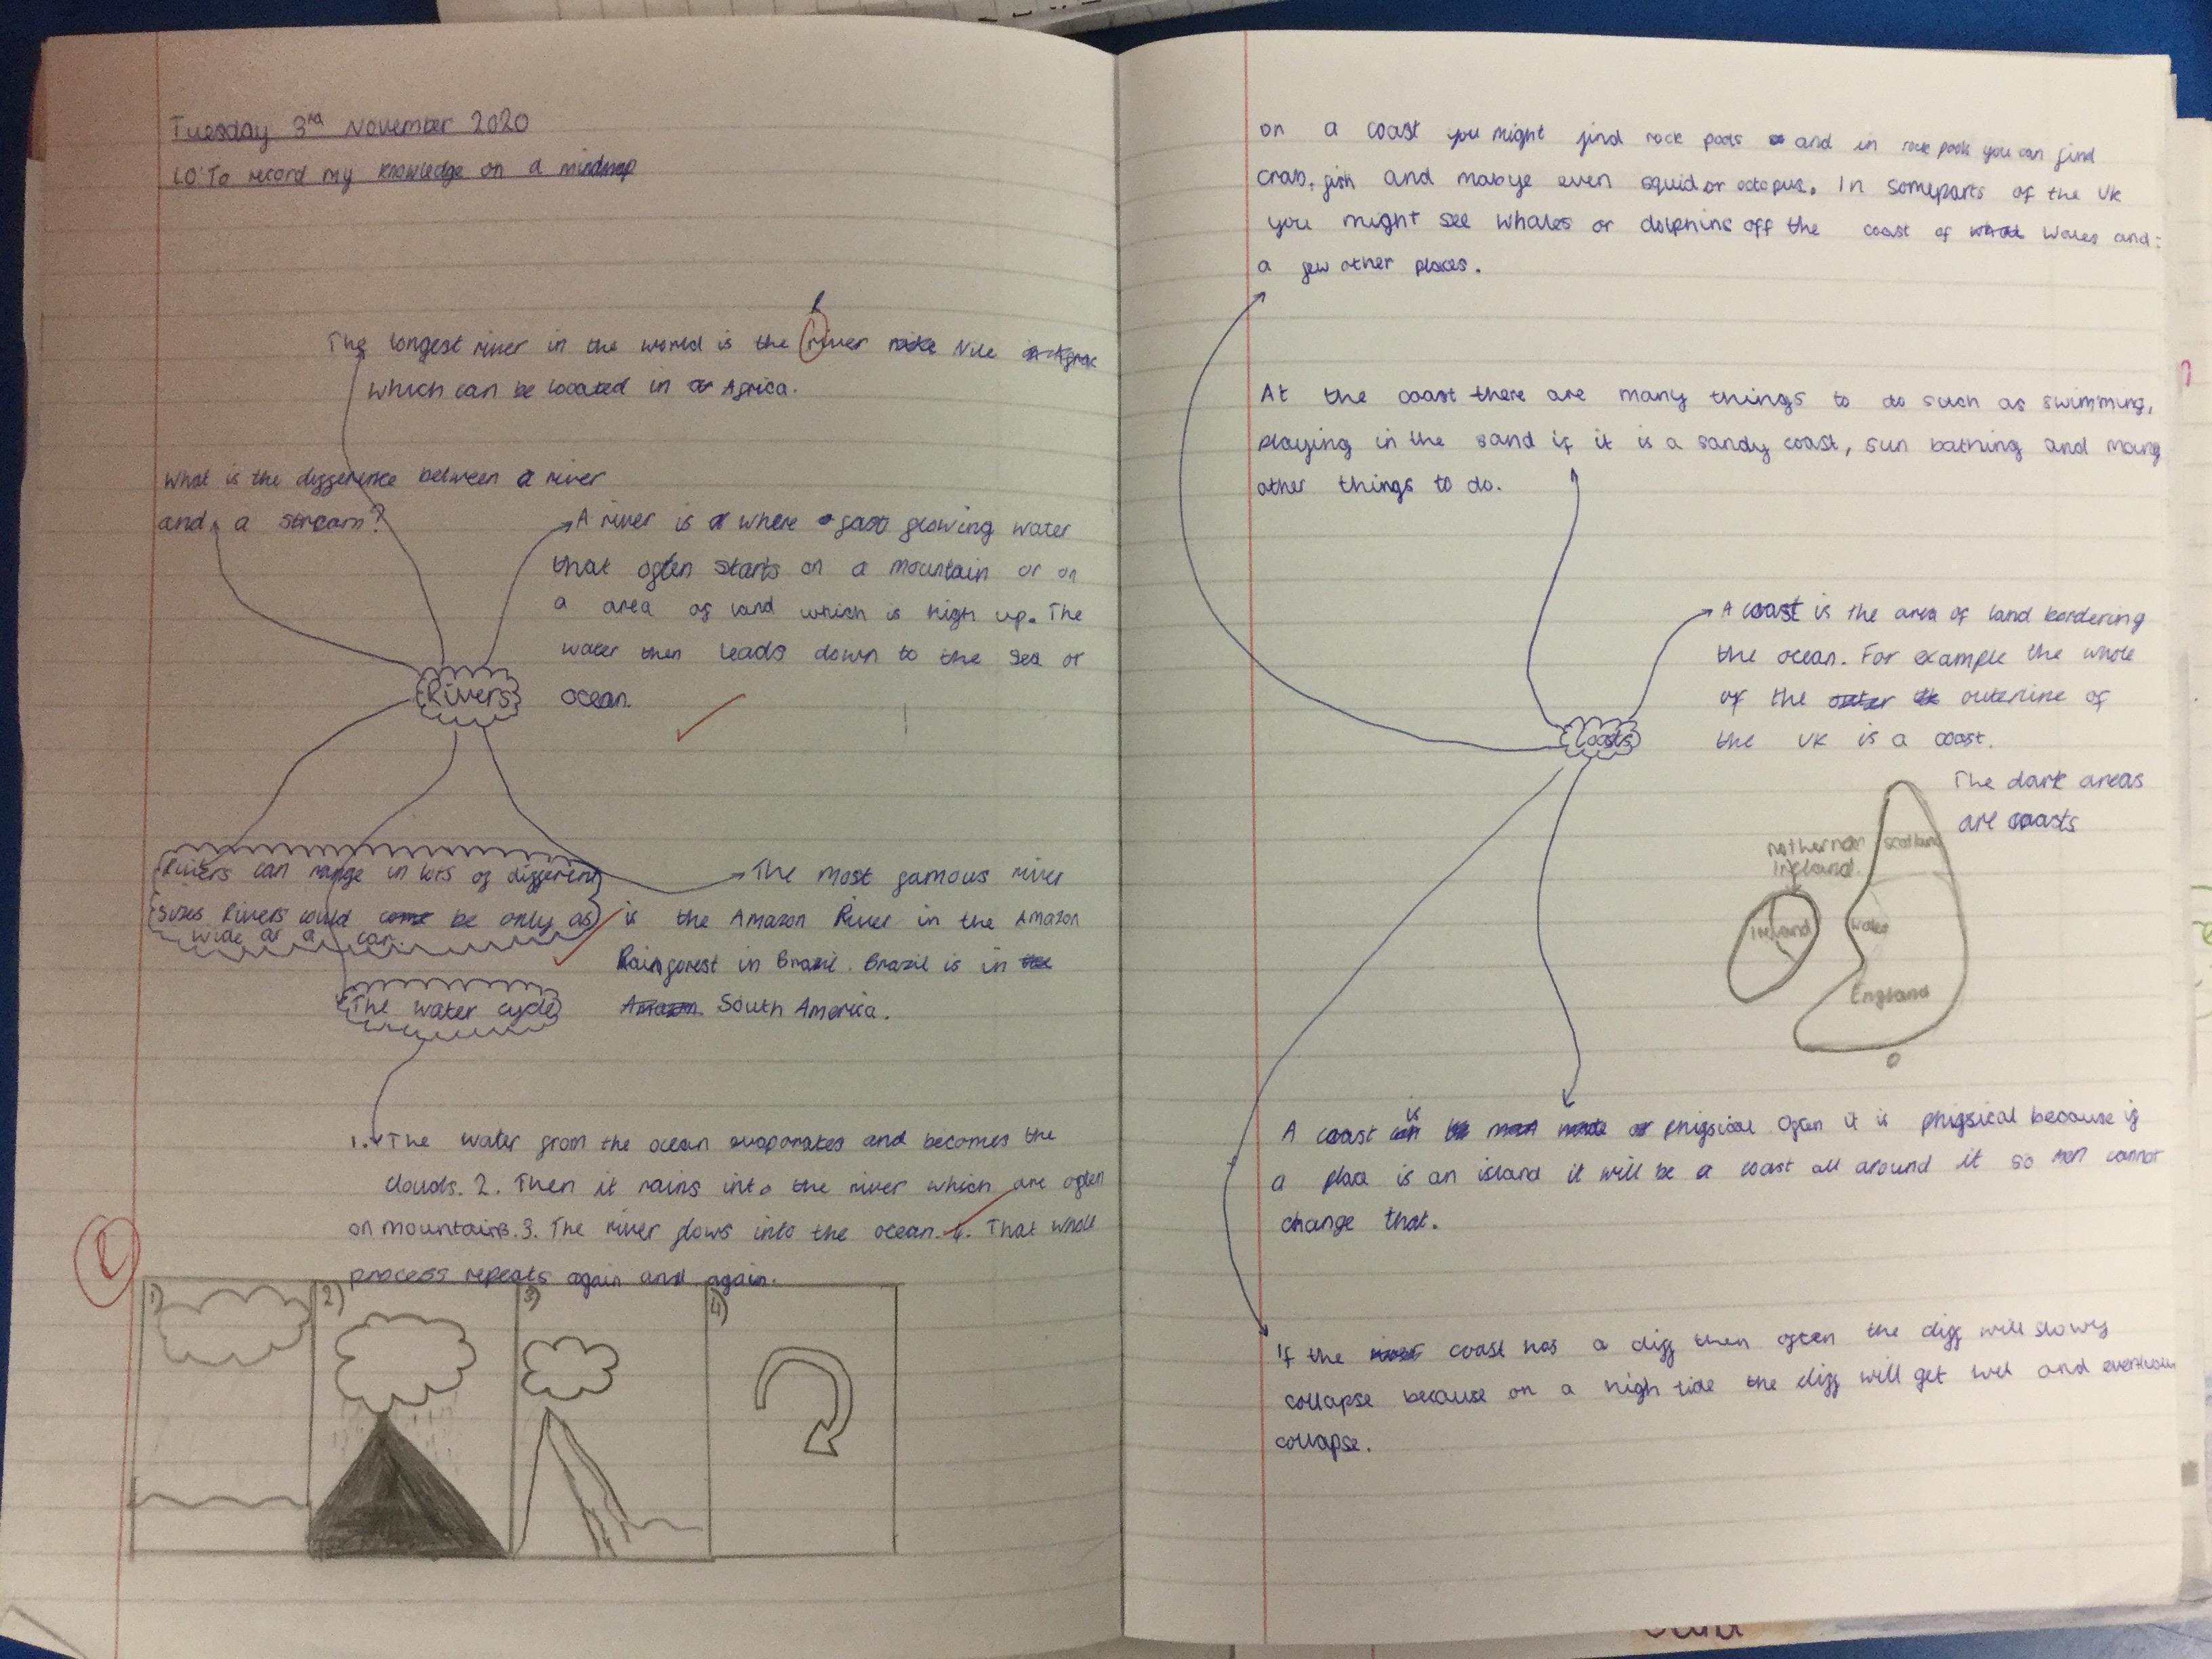 Tuesday 3rd November 2020
LO: To record my knowledge on a mindmap
The longest river in the world is the river Nile
which can be located in Africa.
What is the difference between a river
and a stream?
A river is where fast flowing water
that often starts on a mountain or on
a area of land which is high up. The
water then leads down to the sea or
ocean.
Rivers
Rivers can range in lots of different
sizes Rivers could be only as
wide as a car.
The most famous river
is the Amazon River in the Amazon
Rainforest in Brazil. Brazil is in the
Amazon South America.
The water cycle
1. The water from the ocean evaporates and becomes the
clouds. 2. Then it rains into the river which are often
on mountains. 3. The river flows into the ocean. 4. That whole
process repeats again and again.
1)
2)
3)
4)
on a coast you might find rock pools and in rock pools you can find
crab, fish and mabye even squid or octopus. In someparts of the UK
you might see whales or dolphins off the coast of Wales and
a few other places.
At the coast there are many things to do such as swimming,
playing in the sand if it is a sandy coast, sun bathing and many
other things to do.
A coast is the area of land bordering
the ocean. For example the whole
of the outerline of
the UK is a coast.
Coasts
The dark areas
are coasts
nothernon
Ireland
scotland
Ireland
Wales
England
A coast is phigsical Often it is phigsical because if
a place is an island it will be a coast all around it so men cannot
change that.
If the coast has a cliff then often the cliff will slowly
collapse because on a high tide the cliff will get wet and
collapse.